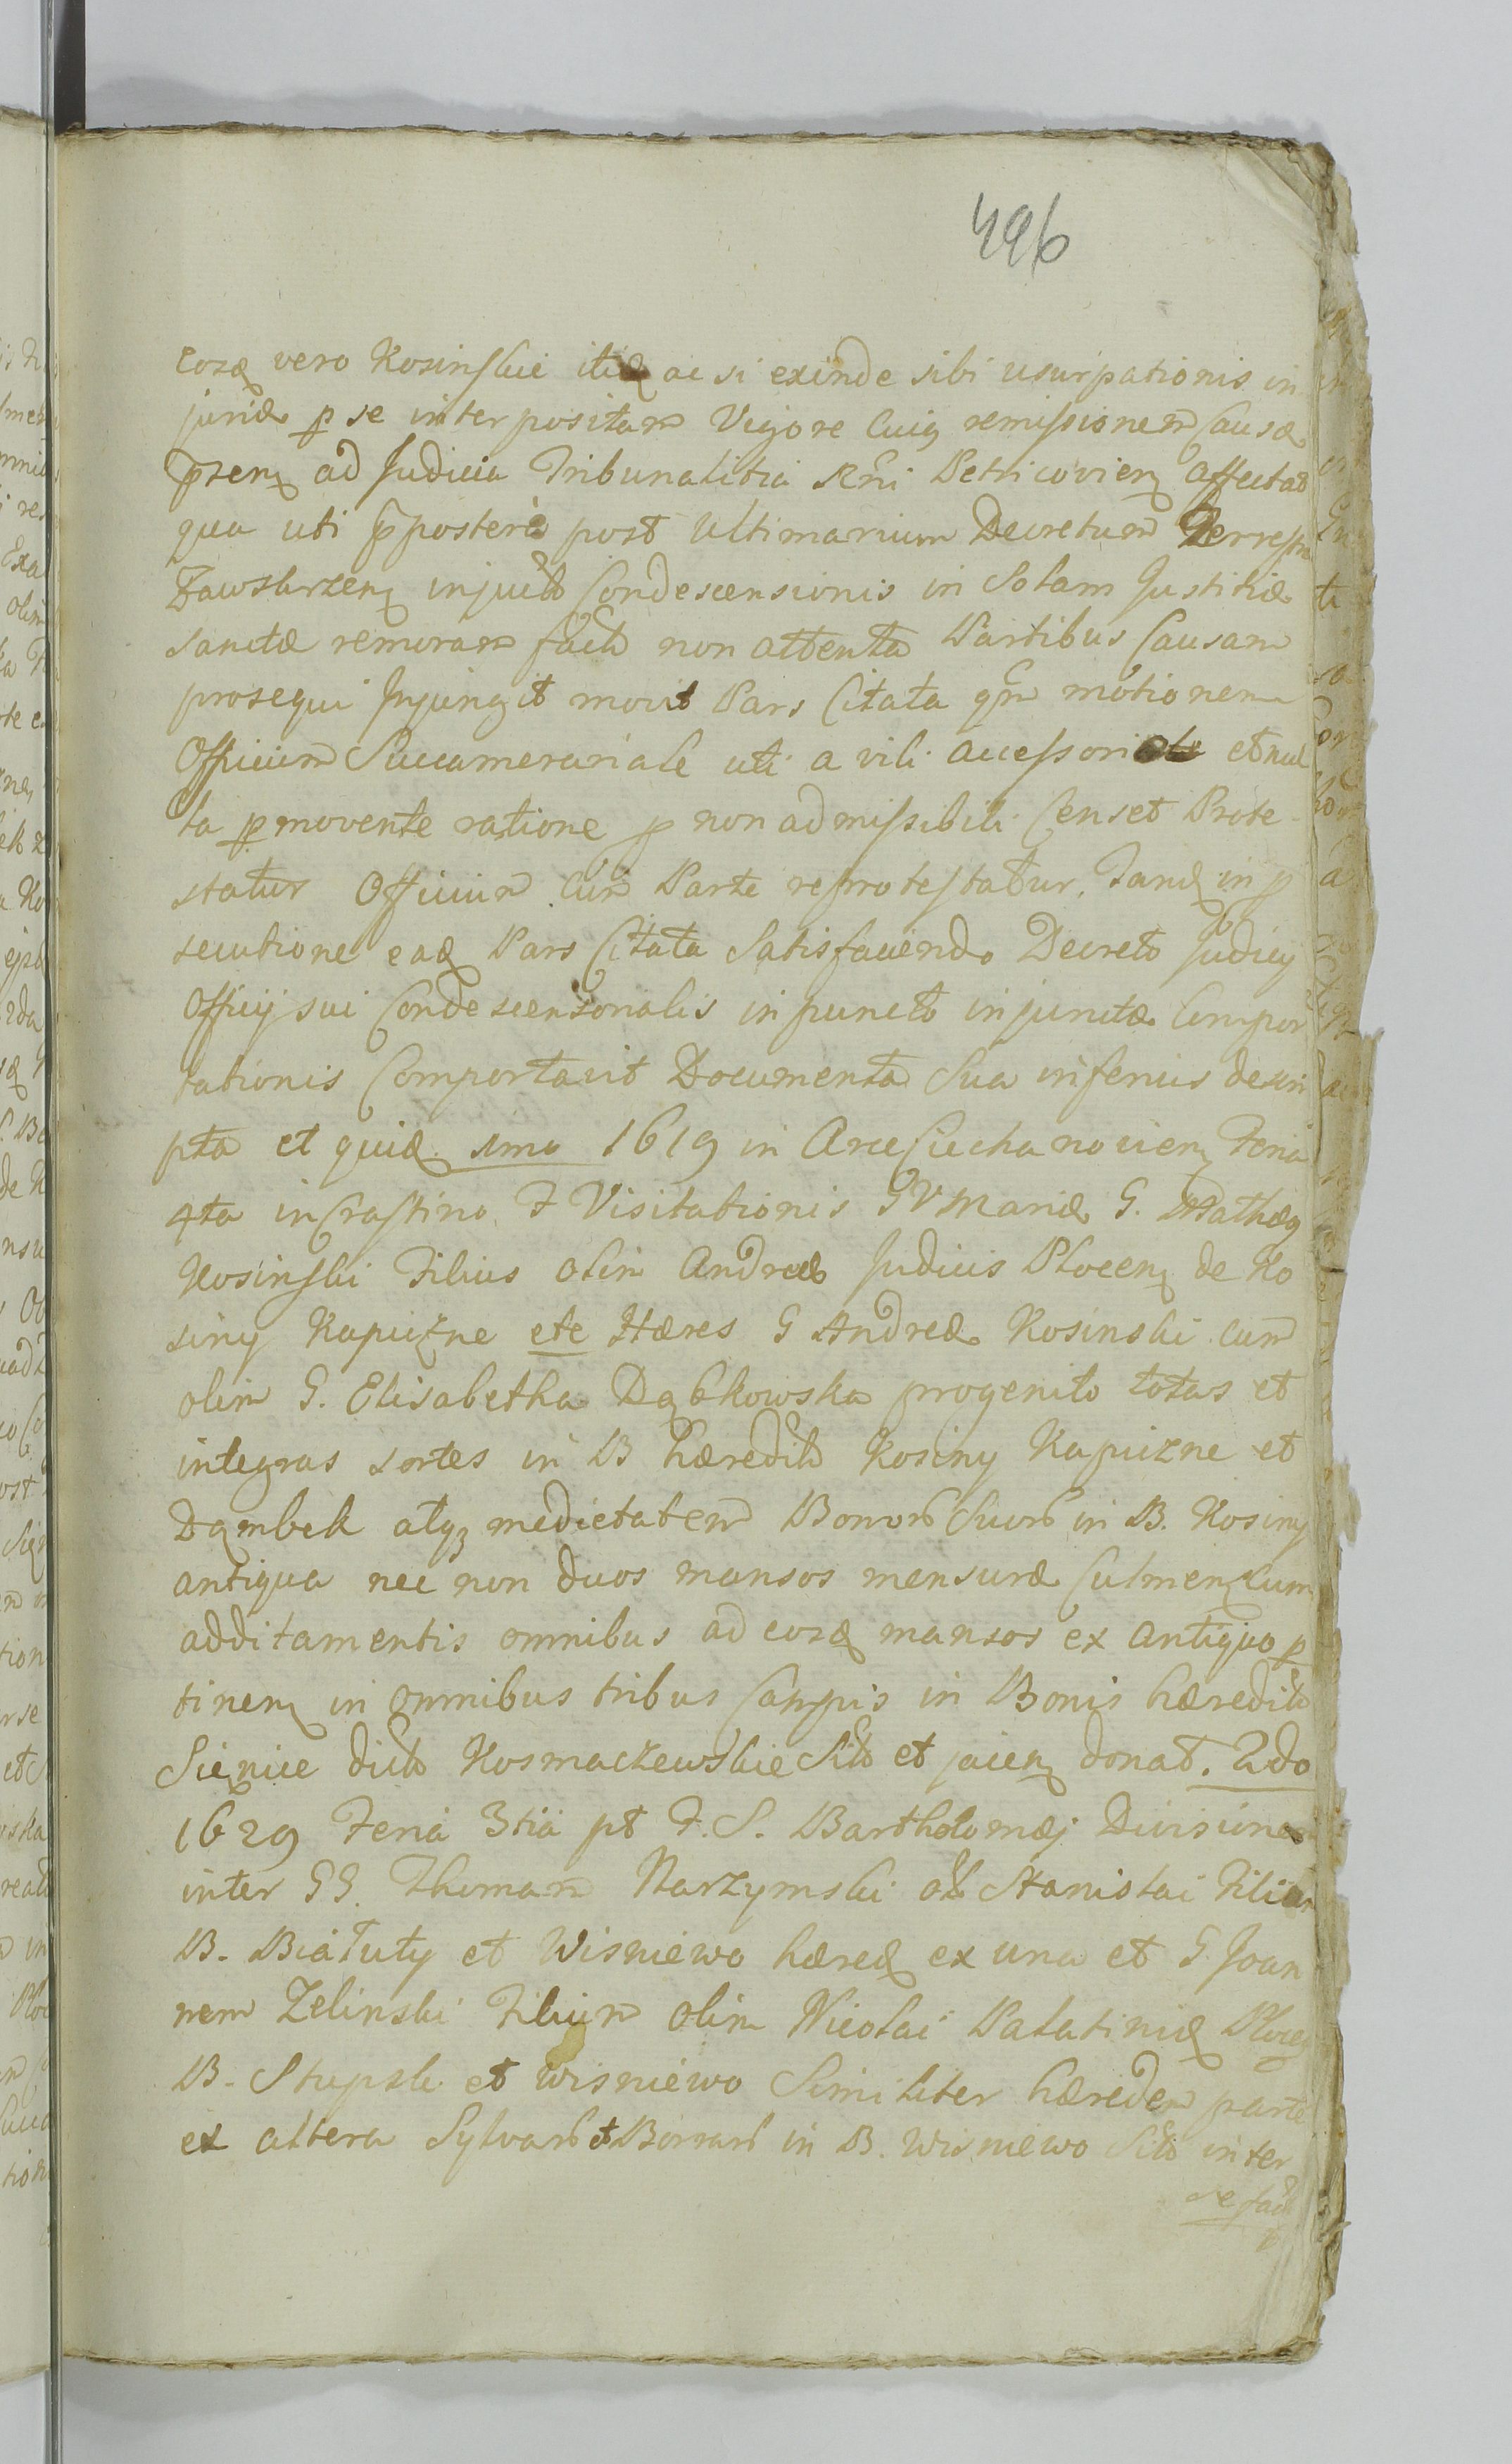 496
eosq vero Kosinskie itiq ac si exinde sibi usurpationis in
juriæ p se interpositam Vigore Cuiq remissionem Causæ
prænq ad Judicia Tribunalitia Rni Petricovienq affectat
qua uti ppostera post Ultimarium Decretum Terrestre
Zawskrzenq injuncto Condescensionis in Solam Justitiæ
sanctæ remoram facto non attenta Partibus Causam
prosequi Injungit movit Pars Citata qm motionem
Officium Succamerariale uti a vili accessorio et nul
la pmovente ratione p non admissibili Censet Prote
statur Officium cum Parte reprotestatur. Tandq in p
secutione eaq Pars Citata Satisfaciendo Decreto Judicij
Officij sui Condescensorialis in puncto injunctæ Compor
tationis Comportavit Documenta Sua inferius descri
pta et quiq 1mo 1619 in Arce Ciechanovienq Feria
4ta in Crastino F Visitationis BVMariæ G. Mathæq
Kosinski Filius olim Andreæ Judicis Plocenq de Ko
siny Kapiczne etc Hæres G Andreæ Kosinski cum
olim G. Elisabetha Dąbkowska progenito totas et
integras sortes in B hæredit Kosiny Kapiczne et
Dąmbek atq3 medietatem Bonor Suor in B. Kosiny
antiqua nec non duos mansos mensuræ Culmenq cum
additamentis omnibus ad eosq mansos ex antiquo p
tinenq in omnibus tribus Campis in Bonis hæredit
Sięnice dict Kosmaczewskie Sit et jacenq donat. 2do
1629 Feria 3tia pt F. S. Bartholomæj Divisiones
inter GG. Thomam Narzymski ol Stanislai Filium
B. Białuty et Wisniewo hæredq ex una et G. Joan
nem Zelinski Filium olim Nicolai Palatiniq Plocenq
B. Stupsk et Wisniewo Similiter hæredem parte
ex altera Sylvar et Borrar in B. Wisniewo Sit inter
se fact